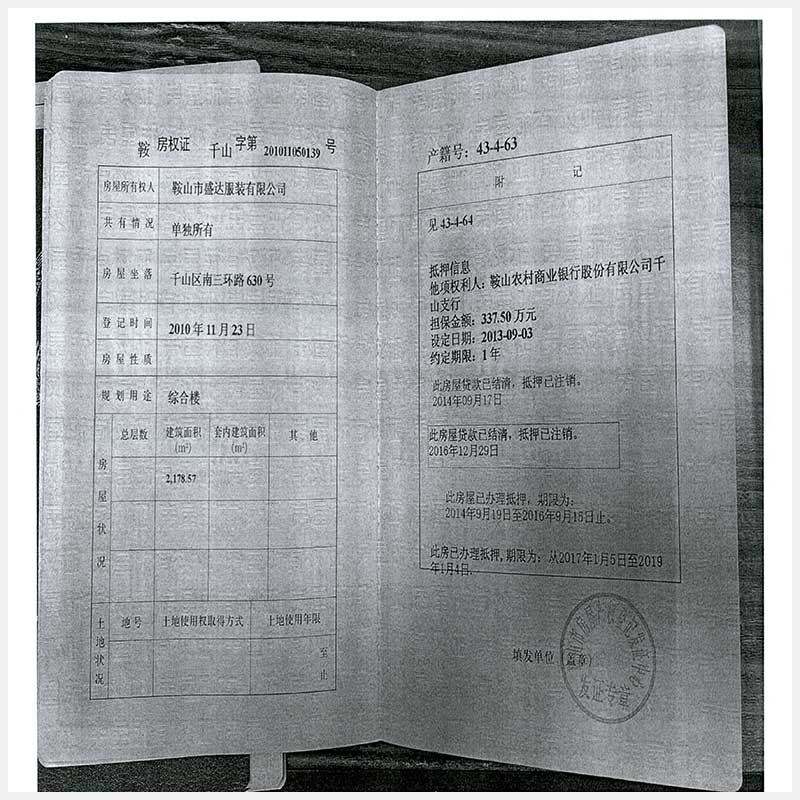 鞍 房权证 千山 字第 201011050139 号
房屋所有权人 鞍山市盛达服装有限公司
共有情况 单独所有
房屋坐落 千山区南三环路630号
登记时间 2010年11月23日
房屋性质
规划用途 综合楼
房屋状况
总层数 建筑面积 套内建筑面积 其他
(m²) (m²)
2,178.57
土地状况
地号 土地使用权取得方式 土地使用年限
至
止
产籍号：43-4-63
附 记
见 43-4-64
抵押信息
他项权利人：鞍山农村商业银行股份有限公司千
山支行
担保金额：337.50 万元
设定日期：2013-09-03
约定期限：1 年
此房屋贷款已结清，抵押已注销。
2014年09月17日
此房屋贷款已结清，抵押已注销。
2016年12月29日
此房屋已办理抵押，期限为：
2014年9月19日至2016年9月15日止。
此房已办理抵押,期限为：从2017年1月5日至2019
年1月4日.
填发单位（盖章）
发证专章